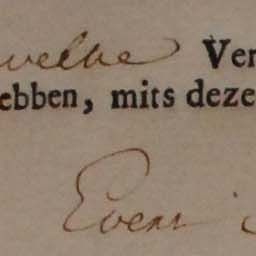 welke Ver
ebben, mits deze
Even